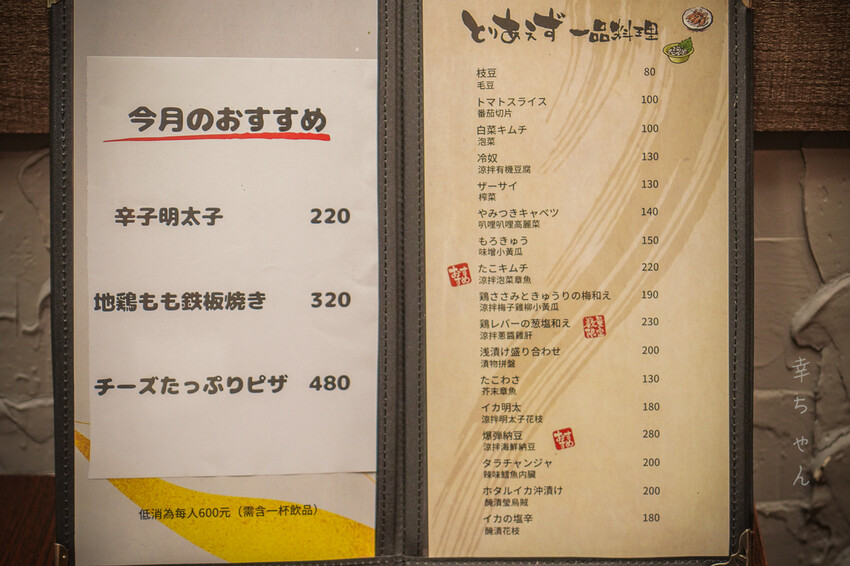 今月のおすすめ
辛子明太子 220
地鶏もも鉄板焼き 320
チーズたっぷりピザ 480
低消為每人600元（需含一杯飲品）
とりあえず 一品料理
枝豆 80
毛豆
トマトスライス 100
番茄切片
白菜キムチ 100
泡菜
冷奴 130
涼拌有機豆腐
ザーサイ 130
榨菜
やみつきキャベツ 140
叭哩叭哩高麗菜
もろきゅう 150
味增小黃瓜
おすすめ
たこキムチ 220
涼拌泡菜章魚
鶏ささみときゅうりの梅和え 190
涼拌梅子雞柳小黃瓜
鶏レバーの葱塩和え 230
涼拌蔥醬雞肝
数量限定
浅漬け盛り合わせ 200
漬物拼盤
たこわさ 130
芥末章魚
イカ明太 180
涼拌明太子花枝
爆弾納豆 280
涼拌海鮮納豆
おすすめ
タラチャンジャ 200
辣味鱈魚內臟
ホタルイカ沖漬け 200
醃漬瑩烏賊
イカの塩辛 180
醃漬花枝
幸ちゃん